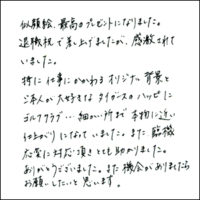 似顔絵、最高のプレゼントになりました。
退職祝で差し上げましたが、感激されて
いました。
特に仕事にかかわるオリジナル背景と
ご本人が大好きなタイガースのハッピに
ゴルフクラブ…細かい所まで本物に近い
仕上がりになっていました。また臨機
応変に対応頂きとても助かりました。
ありがとうございました。また機会がありましたら
お願いしたいと思います。